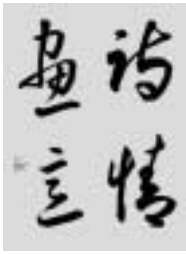 诗情
画意